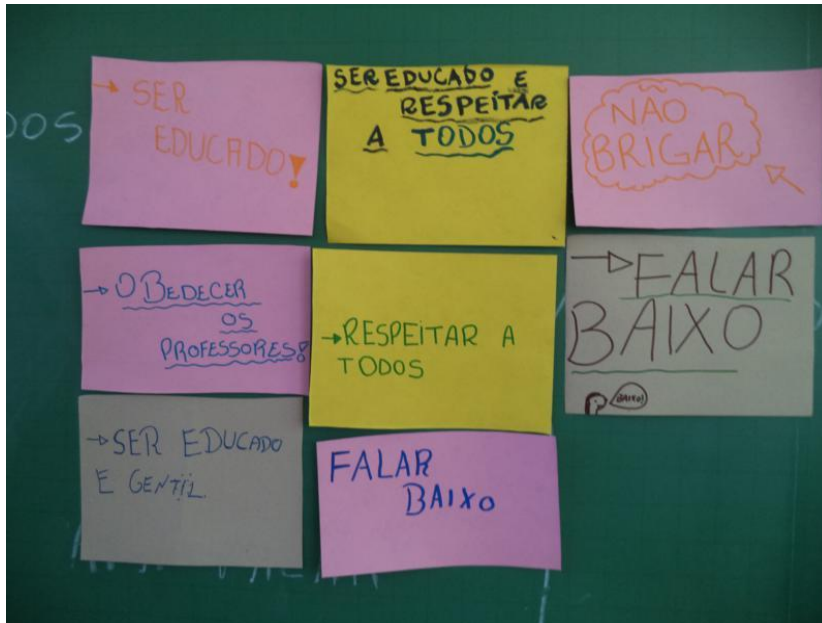 DOS
→ SER
EDUCADO!
SER EDUCADO E
RESPEITAR
A TODOS
NÃO
BRIGAR
→ OBEDECER
OS
PROFESSORES!
→ RESPEITAR A
TODOS
→ FALAR
BAIXO
BAIXO!
→ SER EDUCADO
E GENTIL.
FALAR
BAIXO